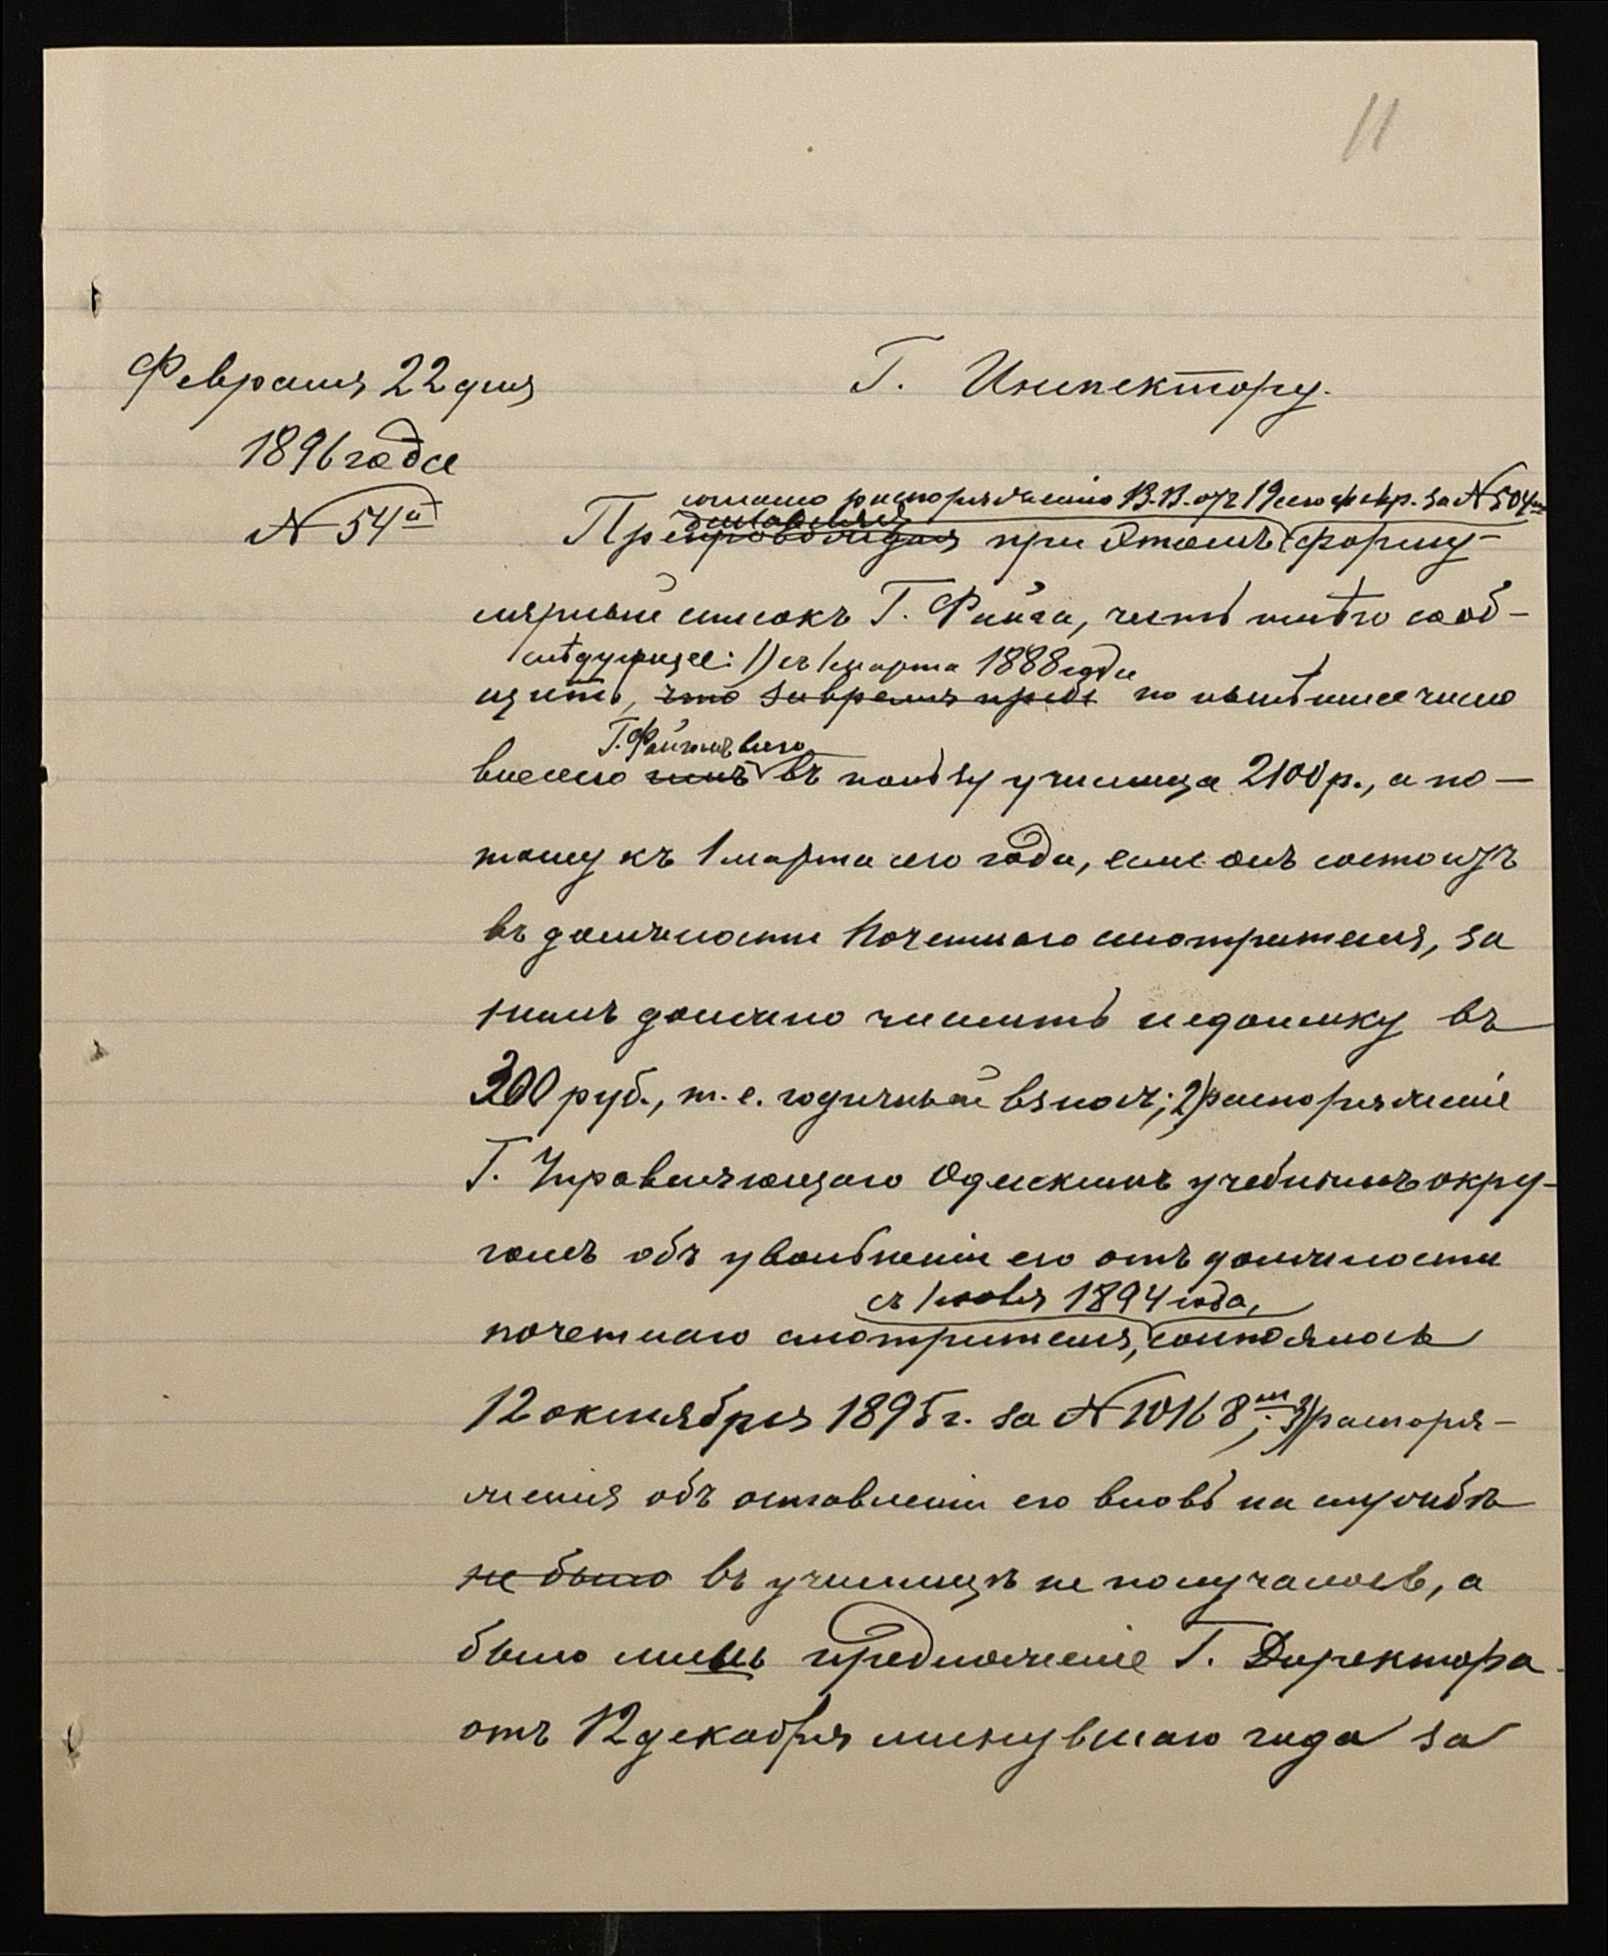 11
Февраля 22 дня
1896 года
N 54й
Г. Инспектору.
согласно распоряженію В.В. отъ 19 сего февр. за N 504м
Представляя
Препровождая при этомъ форму-
лярный списокъ Г. Файга, честь имѣю сооб-
слѣдующее: 1) съ 1 марта 1888 года
щить, что за время преб по нынѣшнее число
Г. Файгомъ всего
внесено имъ въ пользу училища 2100 р., а по-
тому къ 1 марта сего года, если онъ состоитъ
въ должности Почетнаго смотрителя, за
нимъ должно числить недоимку въ
300 руб., т. е. годичный взносъ; 2) распоряженіе
Г. Управляющаго Одесскимъ учебнымъ окру-
гомъ объ увольненіи его отъ должности
съ 1 1894 года,
почетнаго смотрителя, состоялось
12 октября 1895 г. за N 10168м; 3) распоря-
женія объ оставленіи его вновь на службѣ
не было въ училищѣ не получалось, а
было лишь предложеніе Г. Директора
отъ 12 декабря минувшаго года за